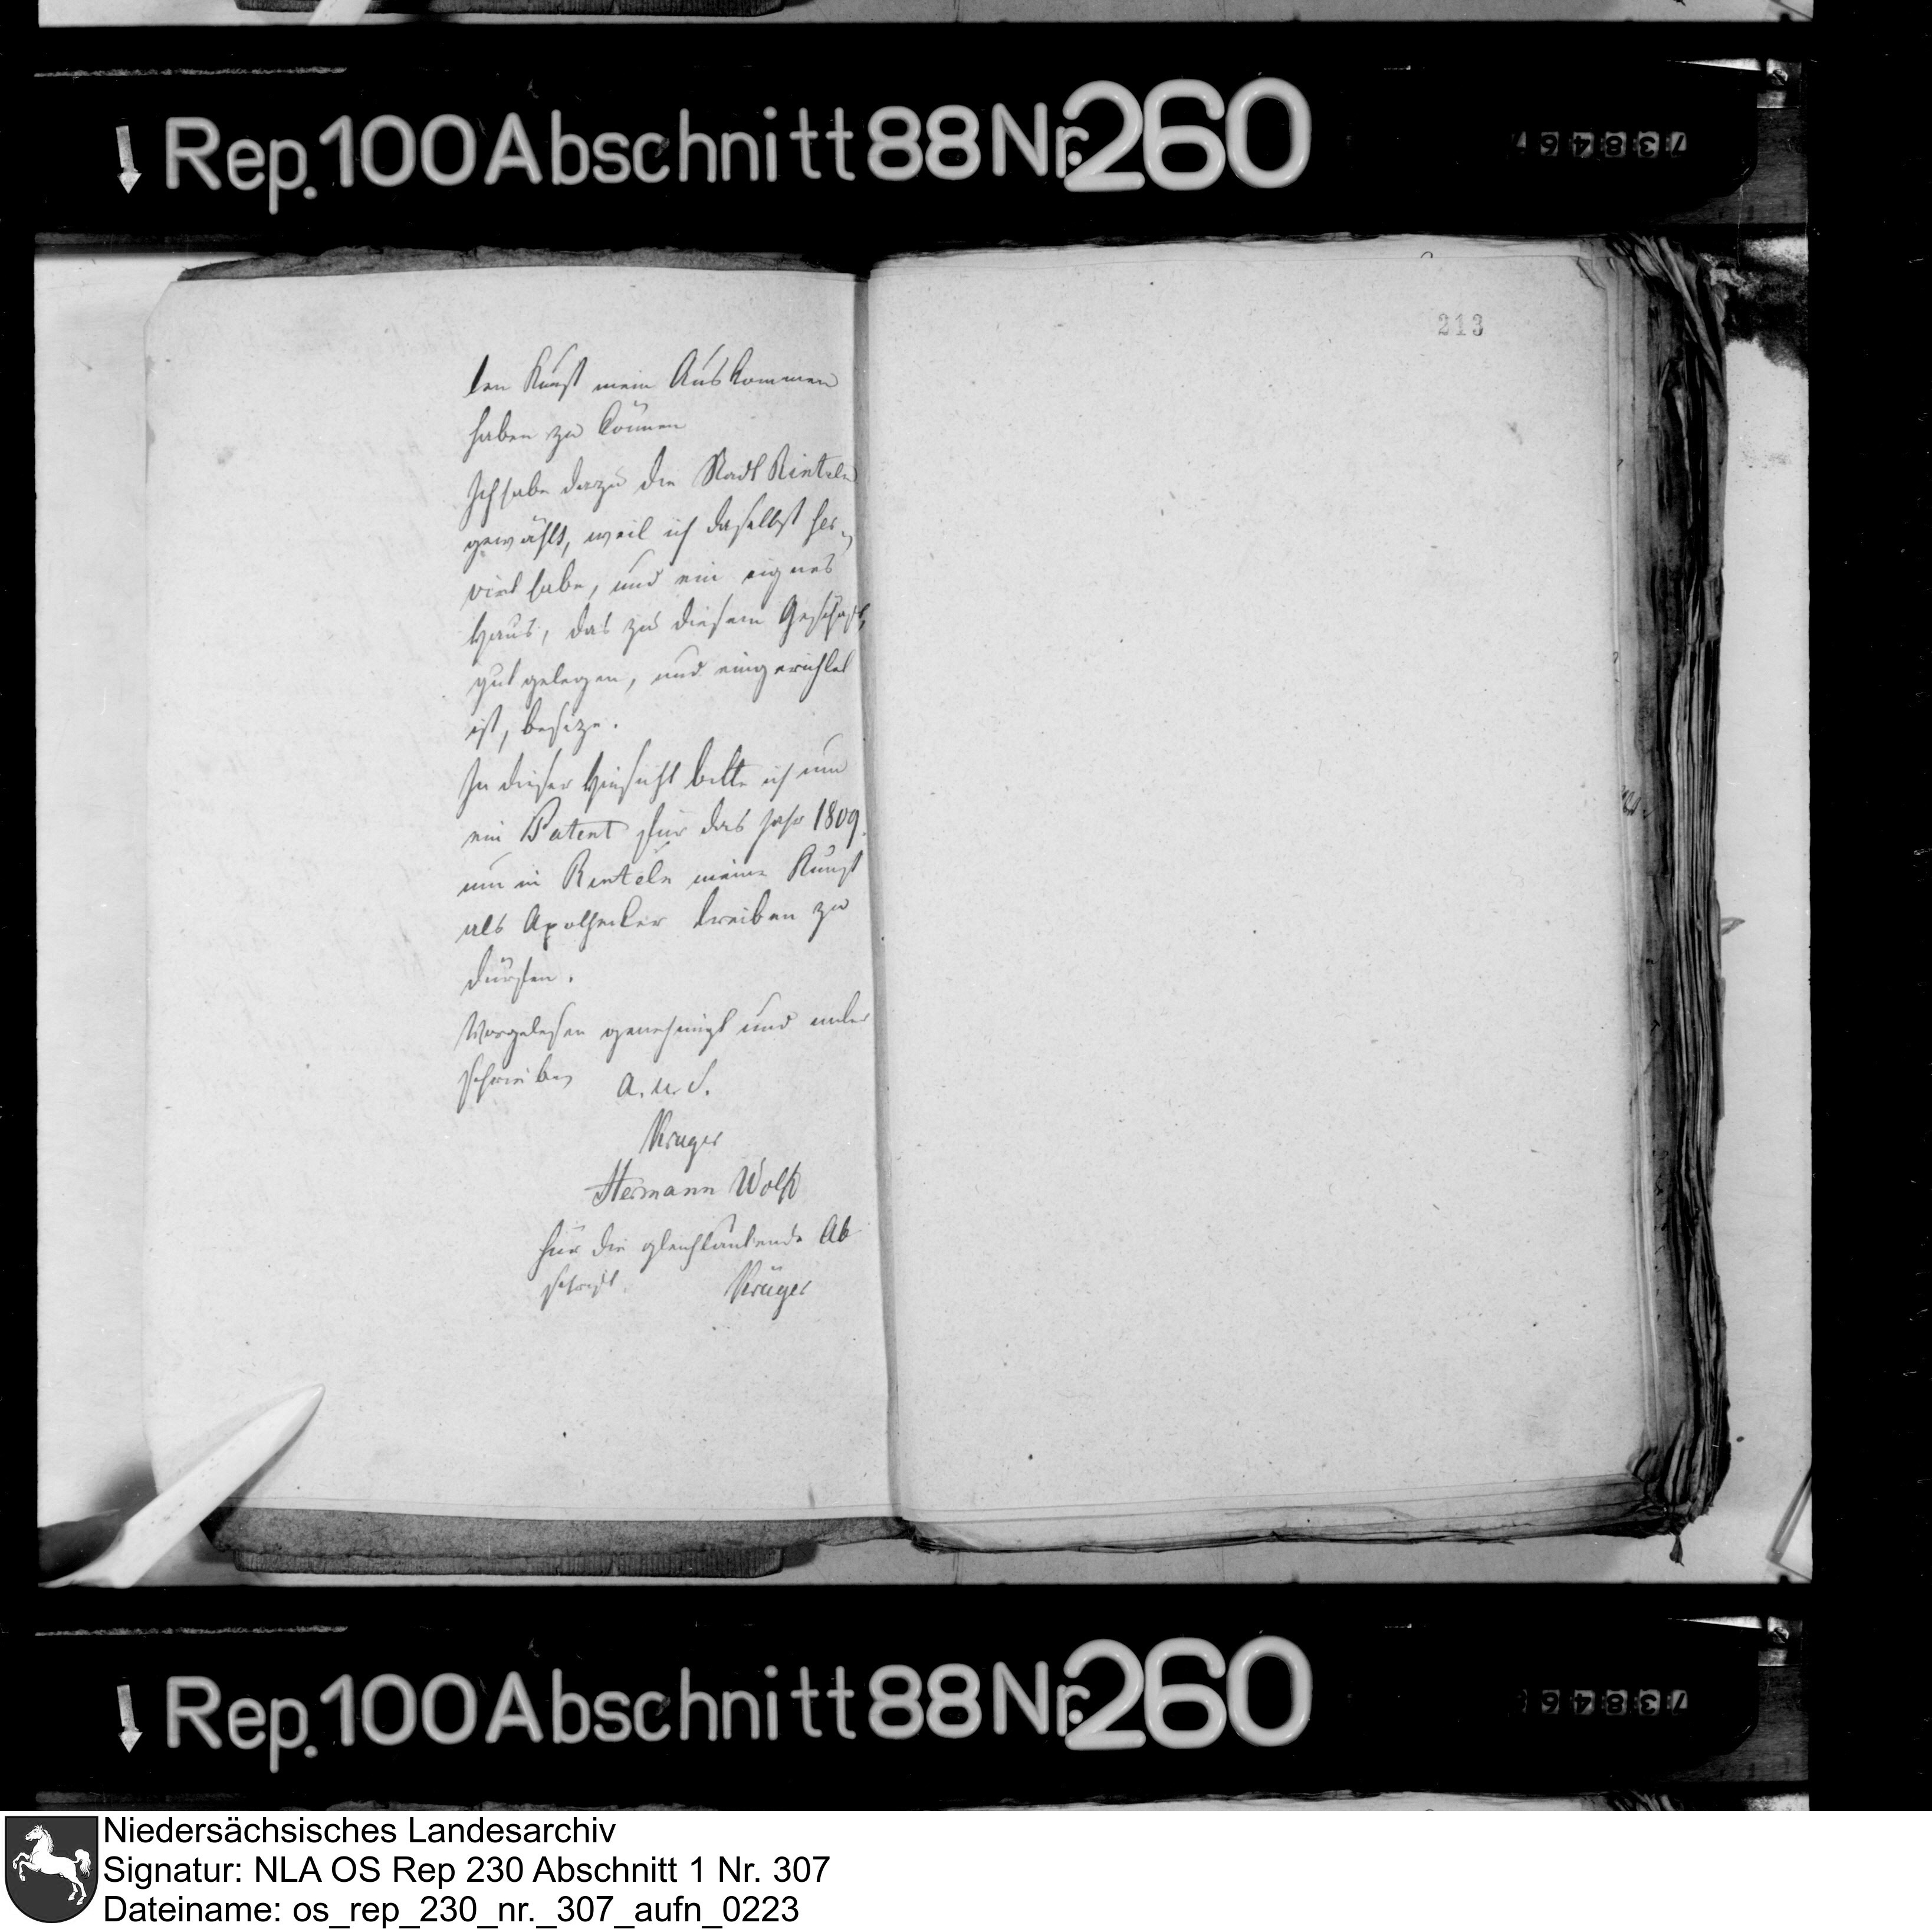 Rep. 100 Abschnitt 88 Nr. 260
738467
213
ten Kunst mein Auskommen
haben zu können
Ich habe dazu die Stadt Rinteln
gewählt, weil ich daselbst
habe, und ein eignes
Haus, das zu diesem Geschäft,
gut gelegen, und eingerichtet
ist, besize.
In dieser Hinsicht bitte ich um
ein Patent für das Jahr 1809.
um in Rinteln meine Kunst
als Apothecker treiben zu
dürfen.
Vorgelesen genehmigt und unter
schrieben a. u. s.
Kruger
Hermann Wolff
Für die gleichlautende Ab
schrift. Krüger
Rep. 100 Abschnitt 88 Nr. 260
738467
Niedersächsisches Landesarchiv
Signatur: NLA OS Rep 230 Abschnitt 1 Nr. 307
Dateiname: os_rep_230_nr._307_aufn_0223